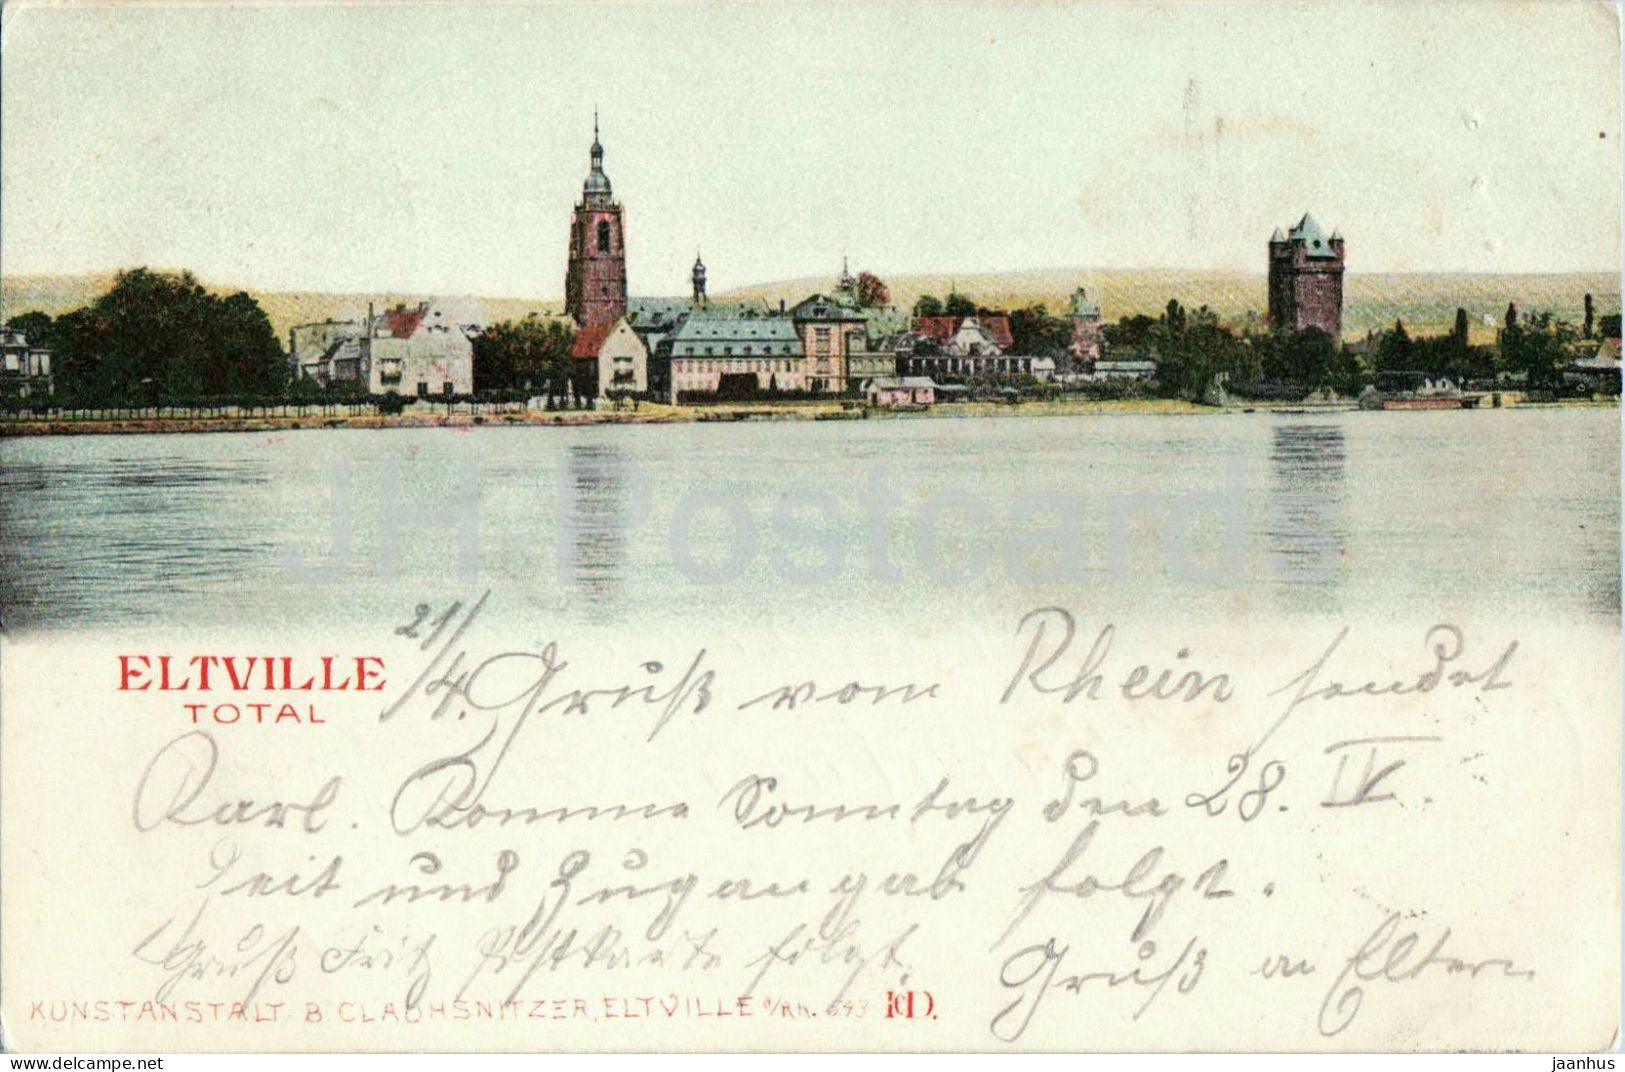 JH Postcards
ELTVILLE
TOTAL
21/4. Gruß vom Rhein sendet
Karl. Komme Sonntag den 28. IV.
Zeit und Zugangab folgt.
Gruß Fritz Postkarte folgt. Gruß an Eltern
KUNSTANSTALT B CLAUHSNITZER, ELTVILLE a/Rh. 643 KD.
delcampe.net
jaanhus